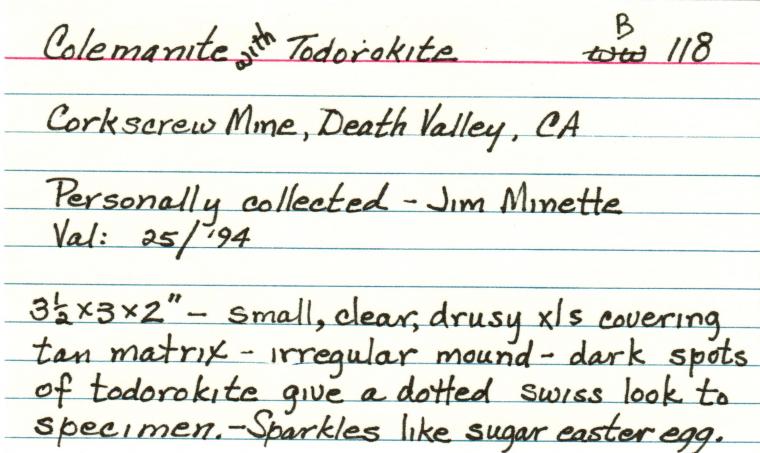 Colemanite with Todorokite B 118
Corkscrew Mine, Death Valley, CA
Personally collected - Jim Minette
Val: 25/'94
3½x3x2" - small, clear, drusy xls covering
tan matrix - irregular mound - dark spots
of todorokite give a dotted swiss look to
specimen. - Sparkles like sugar easter egg.